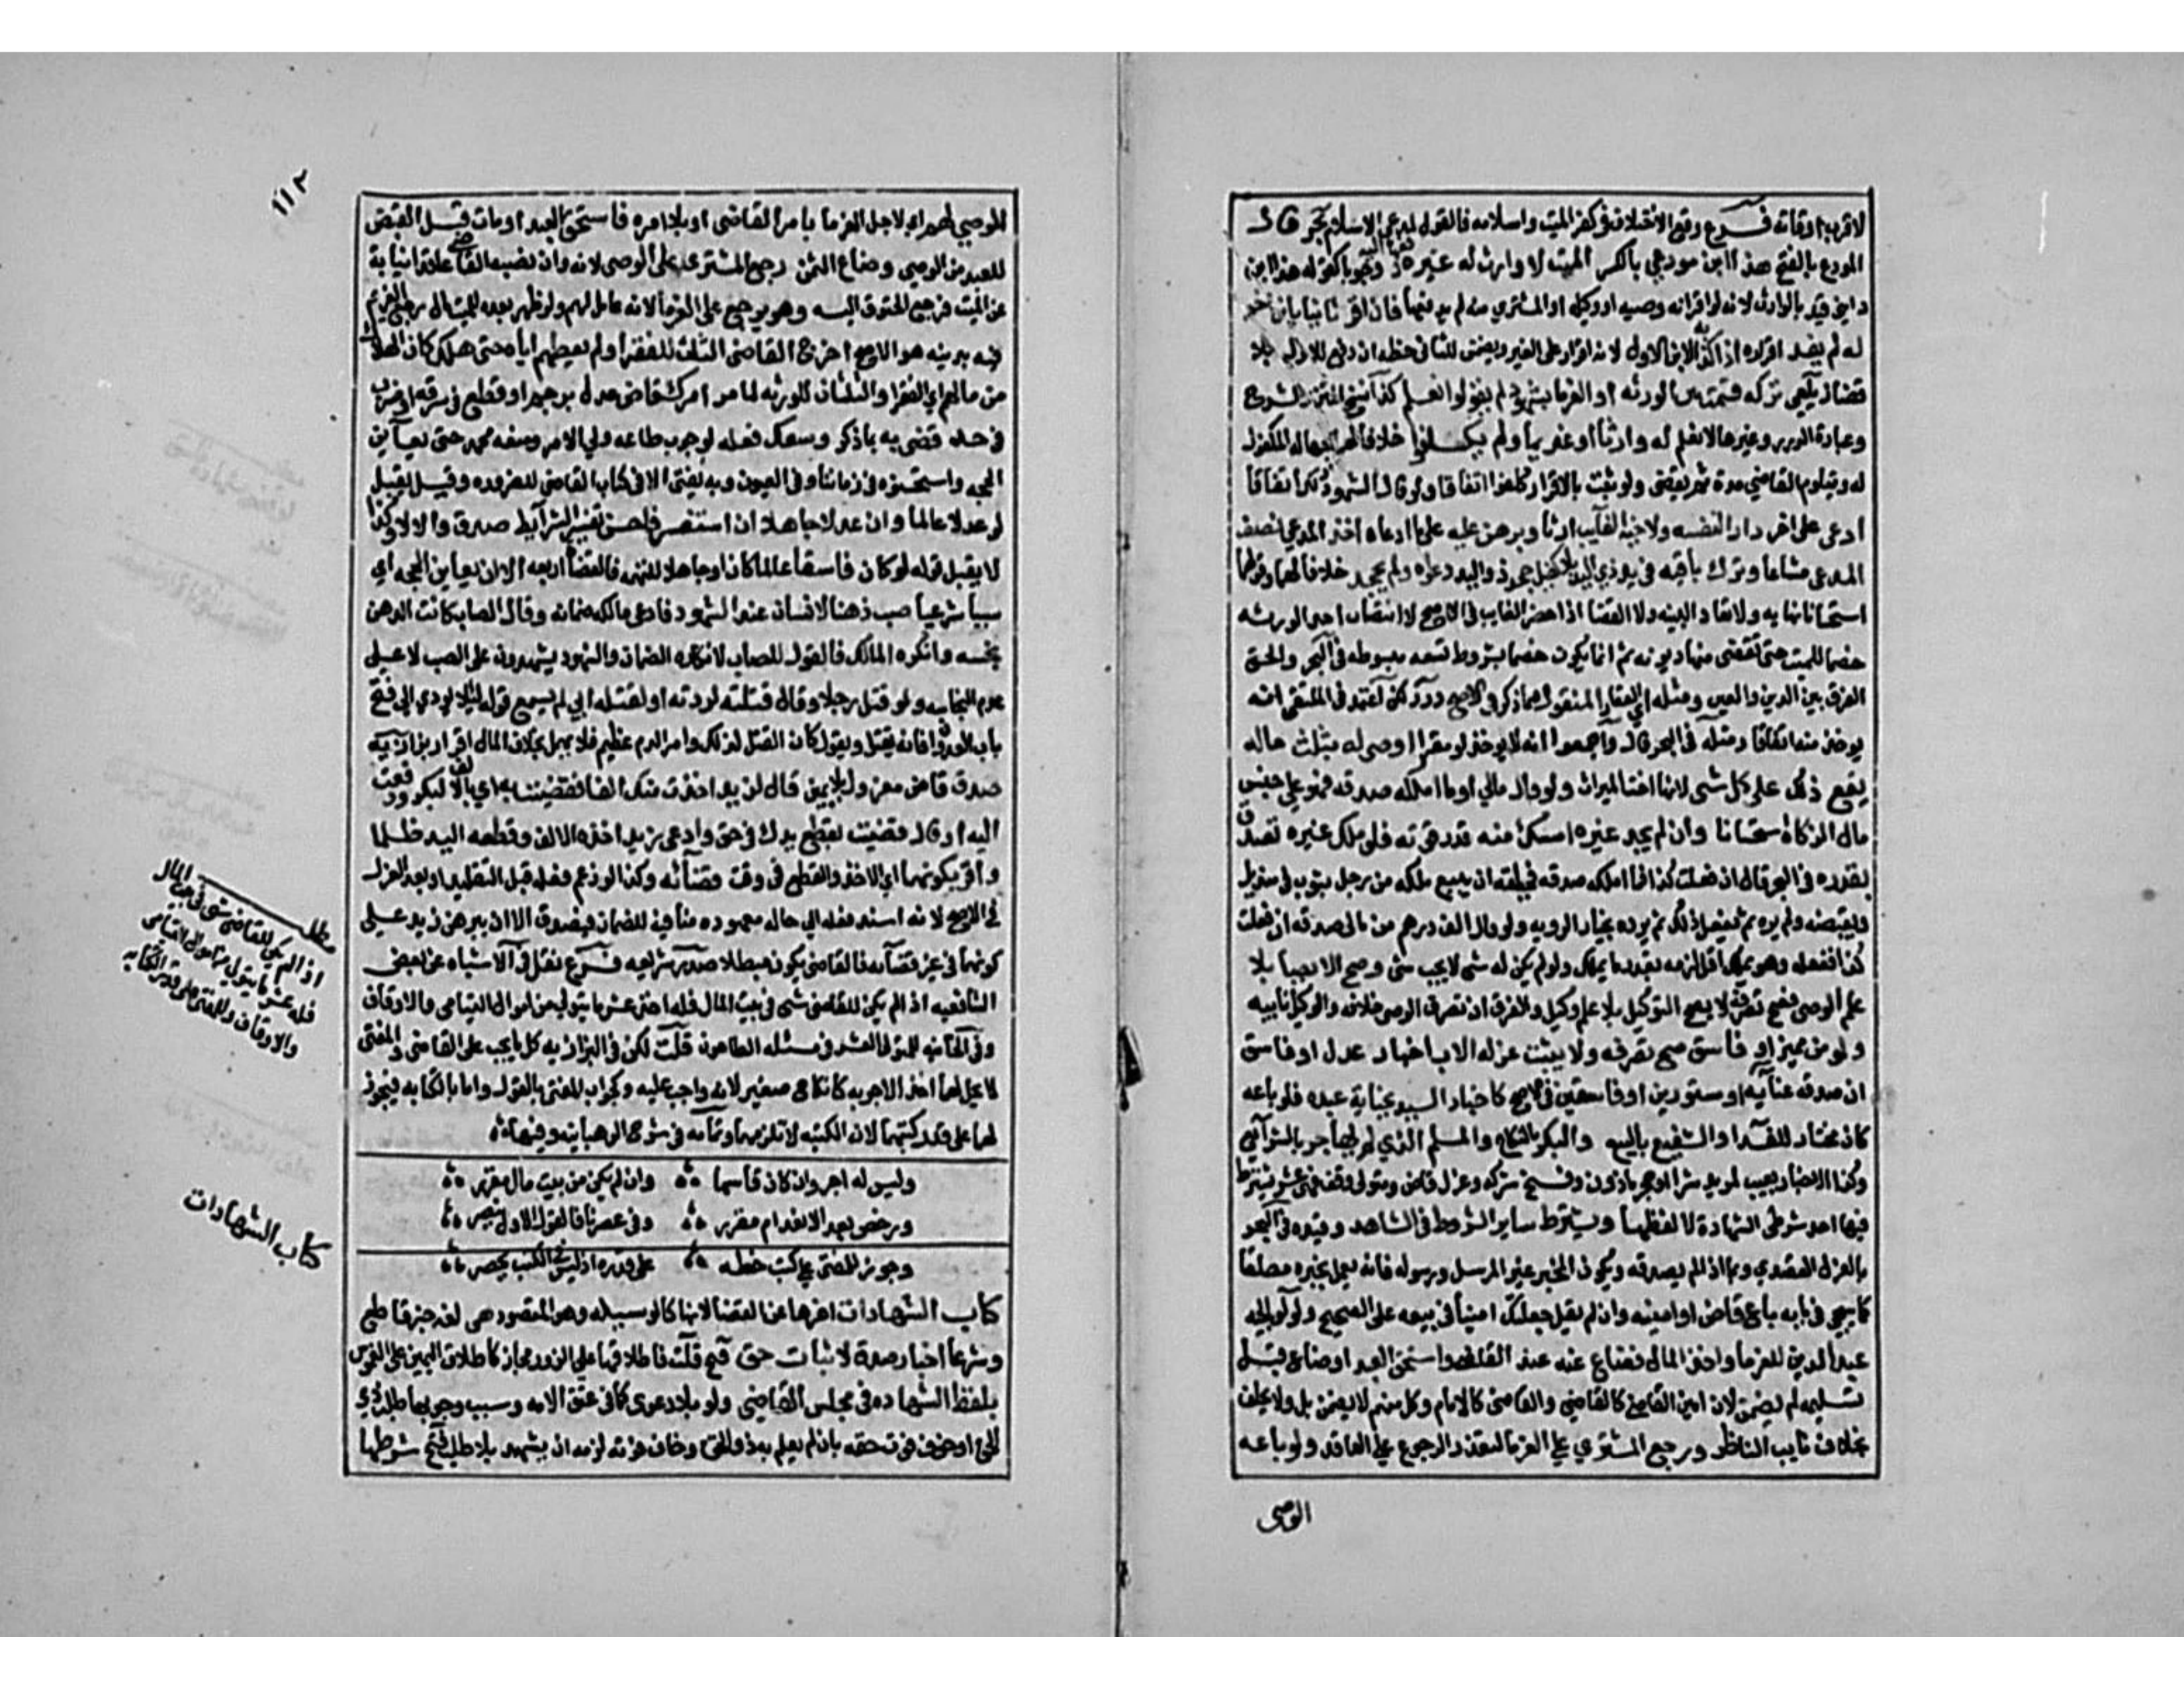 لاقرب اوقاته فرع وقع الاختلاف في كفر الميت واسلامه فالقول لمدعي الاسلام بحر قال
المودع بالفتح هذا ابن مودعي بالكسر الميت لا وارث له غيره
داين قيد بالوارث لانه لو اقر انه وصيه او وكيله او المشتري منه لم يدفعها فان اقر ثانيا بابن اخر
له لم يفد اقراره اذا كذبه الابن الاول لانه اقرار على الغير ويضمن للثاني حظه ان دفع للاول بلا
قضا زيلعي تركه قسمت بين الورثه او الغرما بشهود لم يقولوا نعلم كذا نسخ المتن والشرح
وعبارة الدرر وغيرها لا نعلم له وارثا او غريما ولم يكفلوا خلافا لهما لجهاله المكفول
له ويتلوم القاضي مدة ثم يقضي ولو ثبت بالاقرار كفلوا اتفاقا ولو قال الشهود ذلك لا اتفاقا
ادعى على اخر دارا لنفسه ولاخيه الغايب ارثا وبرهن عليه على ما ادعاه اخذ المدعي نصف
المدعى مشاعا وترك باقيه في يد ذي اليد بلا كفيل جحد ذو اليد دعواه ولم يجحد خلافا لهما وقولهما
استحسان نهايه ولا تعاد البينه ولا القضا اذا حضر الغايب في الاصح لانتصاب احد الورثه
خصما للميت حتى تقضى منها ديونه ثم انما يكون خصما بشروط تسعه مبسوطه في البحر والحق
الفرق بين الدين والعين ومثله اي العقار المنقول فيما ذكر في الاصح درر لكن اعتمد في الملتقى انه
يوخذ منه اتفاقا ومثله في البحر قال واجمعوا انه لا يوخذ لو مقرا اوصى له بثلث ماله
يقع ذلك على كل شي لانها اخت الميراث ولو قال مالي او ما املكه صدقه فهو على جنس
مال الزكاة استحسانا وان لم يجد غيره امسك منه قدر قوته فاذا ملك غيره تصدق
بقدره في البحر قال ان فعلت كذا فما املكه صدقه فحيلته ان يبيع ملكه من رجل بثوب في منديل
ويقبضه ولم يره ثم يفعل ذلك ثم يرده بخيار الرويه ولو قال الف درهم من مالي صدقه ان فعلت
كذا ففعله وهو يملك اقل لزمه بقدر ما يملك ولو لم يكن له شي لا يجب شي وصح الايصا بلا
علم الوصي فصح تصرفه لا يصح التوكيل بلا علم وكيل والفرق ان تصرف الوصي خلافه والوكيل نيابه
ولو من مميز او فاسق صح تصرفه ولا يثبت عزله الا باخبار عدل او فاسق
ان صدقه عنايه او مستورين او فاسقين في الاصح كاخبار السيد بجناية عبده فلو باعه
كان مختارا للفدا والشفيع بالبيع والبكر بالنكاح والمسلم الذي لم يهاجر بالشرايع
وكذا الاخبار بعيب لمريد شرا وحجر ماذون وفسخ شركه وعزل قاض ومتولي وقف فهي عشر يشترط
فيها احد شرطي الشهادة لا لفظها ويشترط ساير الشروط في الشاهد وقيده في البحر
بالعزل القصدي وبما اذا لم يصدقه ويكون المخبر غير المرسل ورسوله فانه يعمل بخبره مطلقا
كما يجي في بابه باع قاض او امينه وان لم يقل جعلتك امينا في بيعه على الصحيح ولوالجيه
عبدا لدين للغرما واخذ المال فضاع ثمنه عند القاضي واستحق العبد او ضاع قبل
تسليمه لم يضمن لان امين القاضي كالقاضي والقاضي كالامام وكل منهم لا يضمن بل ولا يحلف
بخلاف نايب الناظر ورجع المشتري على الغرما لتعذر الرجوع على العاقد ولو باعه
الوصي
١١٢
الوصي لهم اي لاجل الغرما بامر القاضي او بلا امره فاستحق العبد او مات قبل القبض
للعبد من الوصي وضاع الثمن رجع المشتري على الوصي لانه وان نصبه القاضي عاقد نيابة
عن الميت فترجع الحقوق اليه وهو يرجع على الغرما لانه عامل لهم ولو ظهر بعده للميت مال رجع الغريم
فيه بدينه هو الاصح اخرج القاضي الثلث للفقرا ولم يعطهم اياه حتى هلك كان الهلاك
من مالهم اي الفقرا والثلثان للورثه لما مر امرك قاض عدل برجم او قطع في سرقه او ضرب
في حد قضى به بما ذكر وسعك فعله لوجوب طاعه ولي الامر ومنعه محمد حتى يعاين
الحجه واستحسنوه في زماننا وفي العيون وبه يفتى الا في كتاب القاضي للضروره وقيل يقبل
لو عدلا عالما وان عدلا جاهلا ان استفسر فاحسن تفسير الشرايط صدق والا لا وكذا
لا يقبل قوله لو كان فاسقا عالما كان او جاهلا للتهمه فالقضاة اربعه الا ان يعاين الحجه اي
سببا شرعيا صب دهنا لانسان عند الشهود فادعى مالكه ضمانه وقال الصاب كانت الدهن
نجسه وانكره المالك فالقول للصاب لانكاره الضمان والشهود يشهدون على الصب لا على
عدم النجاسه ولو قتل رجلا وقال قتلته لردته او لقتله ابي لم يسمع قوله لئلا يودي الى فتح
باب العدوان فانه يقتل ويقول كان القتل لذلك وامر الدم عظيم فلا يهمل بخلاف المال اقرار بزازيه
صدق قاض معزول بلا يمين قال لزيد اخذت منك الفا فقضيت به اي بالالف لبكر ودفعت
اليه او قال قضيت بقطع يدك في حق وادعى زيد اخذه الالف وقطعه اليد ظلما
واقر بكونهما اي الاخذ والقطع في وقت قضائه وكذا لو زعم فعله قبل التقليد او بعد العزل
في الاصح لانه اسند فعله الى حاله معهوده منافيه للضمان فيصدق الا ان يبرهن زيد على
كونهما في غير قضآئه فالقاضي يكون مبطلا صدر شريعه فرع نقل في الاشباه عن بعض
الشافعيه اذا لم يكن للقاضي شي في بيت المال فله اخذ عشر ما يتولى من اموال اليتامى والاوقاف
وفي الخانيه للمتولي العشر في مسئله الطاحون قلت لكن في البزازيه كل ما يجب على القاضي والمفتي
لا يحل لهما اخذ الاجر به كانكاح صغير لانه واجب عليه وكجواب المفتي بالقول واما بالكتابه فيجوز
لهما على قدر كتبهما لان الكتبه لا تلزمهما وتمامه في شرح الوهبانيه وفيها
وليس له اجر وان كان قاسما وان لم يكن من بيت مال مقرر
ورخص بعد الانعدام مقرر وفي عصرنا فالقول الاول ينصر
وجوز للمفتي على كتب خطه على قدره اذ ليس في الكتب يحصر
كتاب الشهادات اخرها عن القضا لانها كالوسيله وهو المقصود هي لغه خبر قاطع
وشرعا اخبار صدق لاثبات حق فتح قلت فاطلاقها على الزور مجاز كاطلاق اليمين على الغموس
بلفظ الشهاده في مجلس القاضي ولو بلا دعوى كما في عتق الامه وسبب وجوبها طلب ذي
الحق او خوف فوت حقه بان لم يعلم بها ذو الحق وخاف فوته لزمه ان يشهد بلا طلب فتح شرطها
مطلب
اذا لم يكن للقاضي شي في بيت المال
فله عشر ما يتولى من اموال اليتامى
والاوقاف وللمفتي على قدر الكتابه
كتاب الشهادات